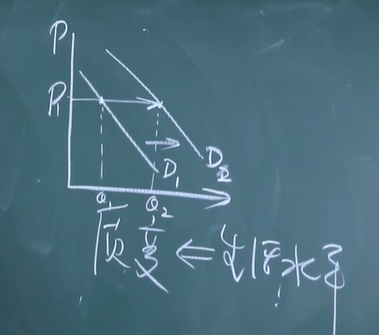 P
P₁
D₁
D₂
Q₁ Q₂
质量 ⇐ 生活水平